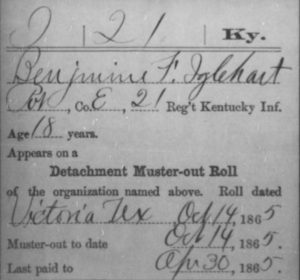 I 21 Ky.
Benjmine F. Iglehart
Pvt, Co. E, 21 Reg't Kentucky Inf.
Age 18 years.
Appears on a
Detachment Muster-out Roll
of the organization named above. Roll dated
Victoria Tex Oct 14, 1865.
Muster-out to date Oct 14, 1865.
Last paid to Apr 30, 1865.